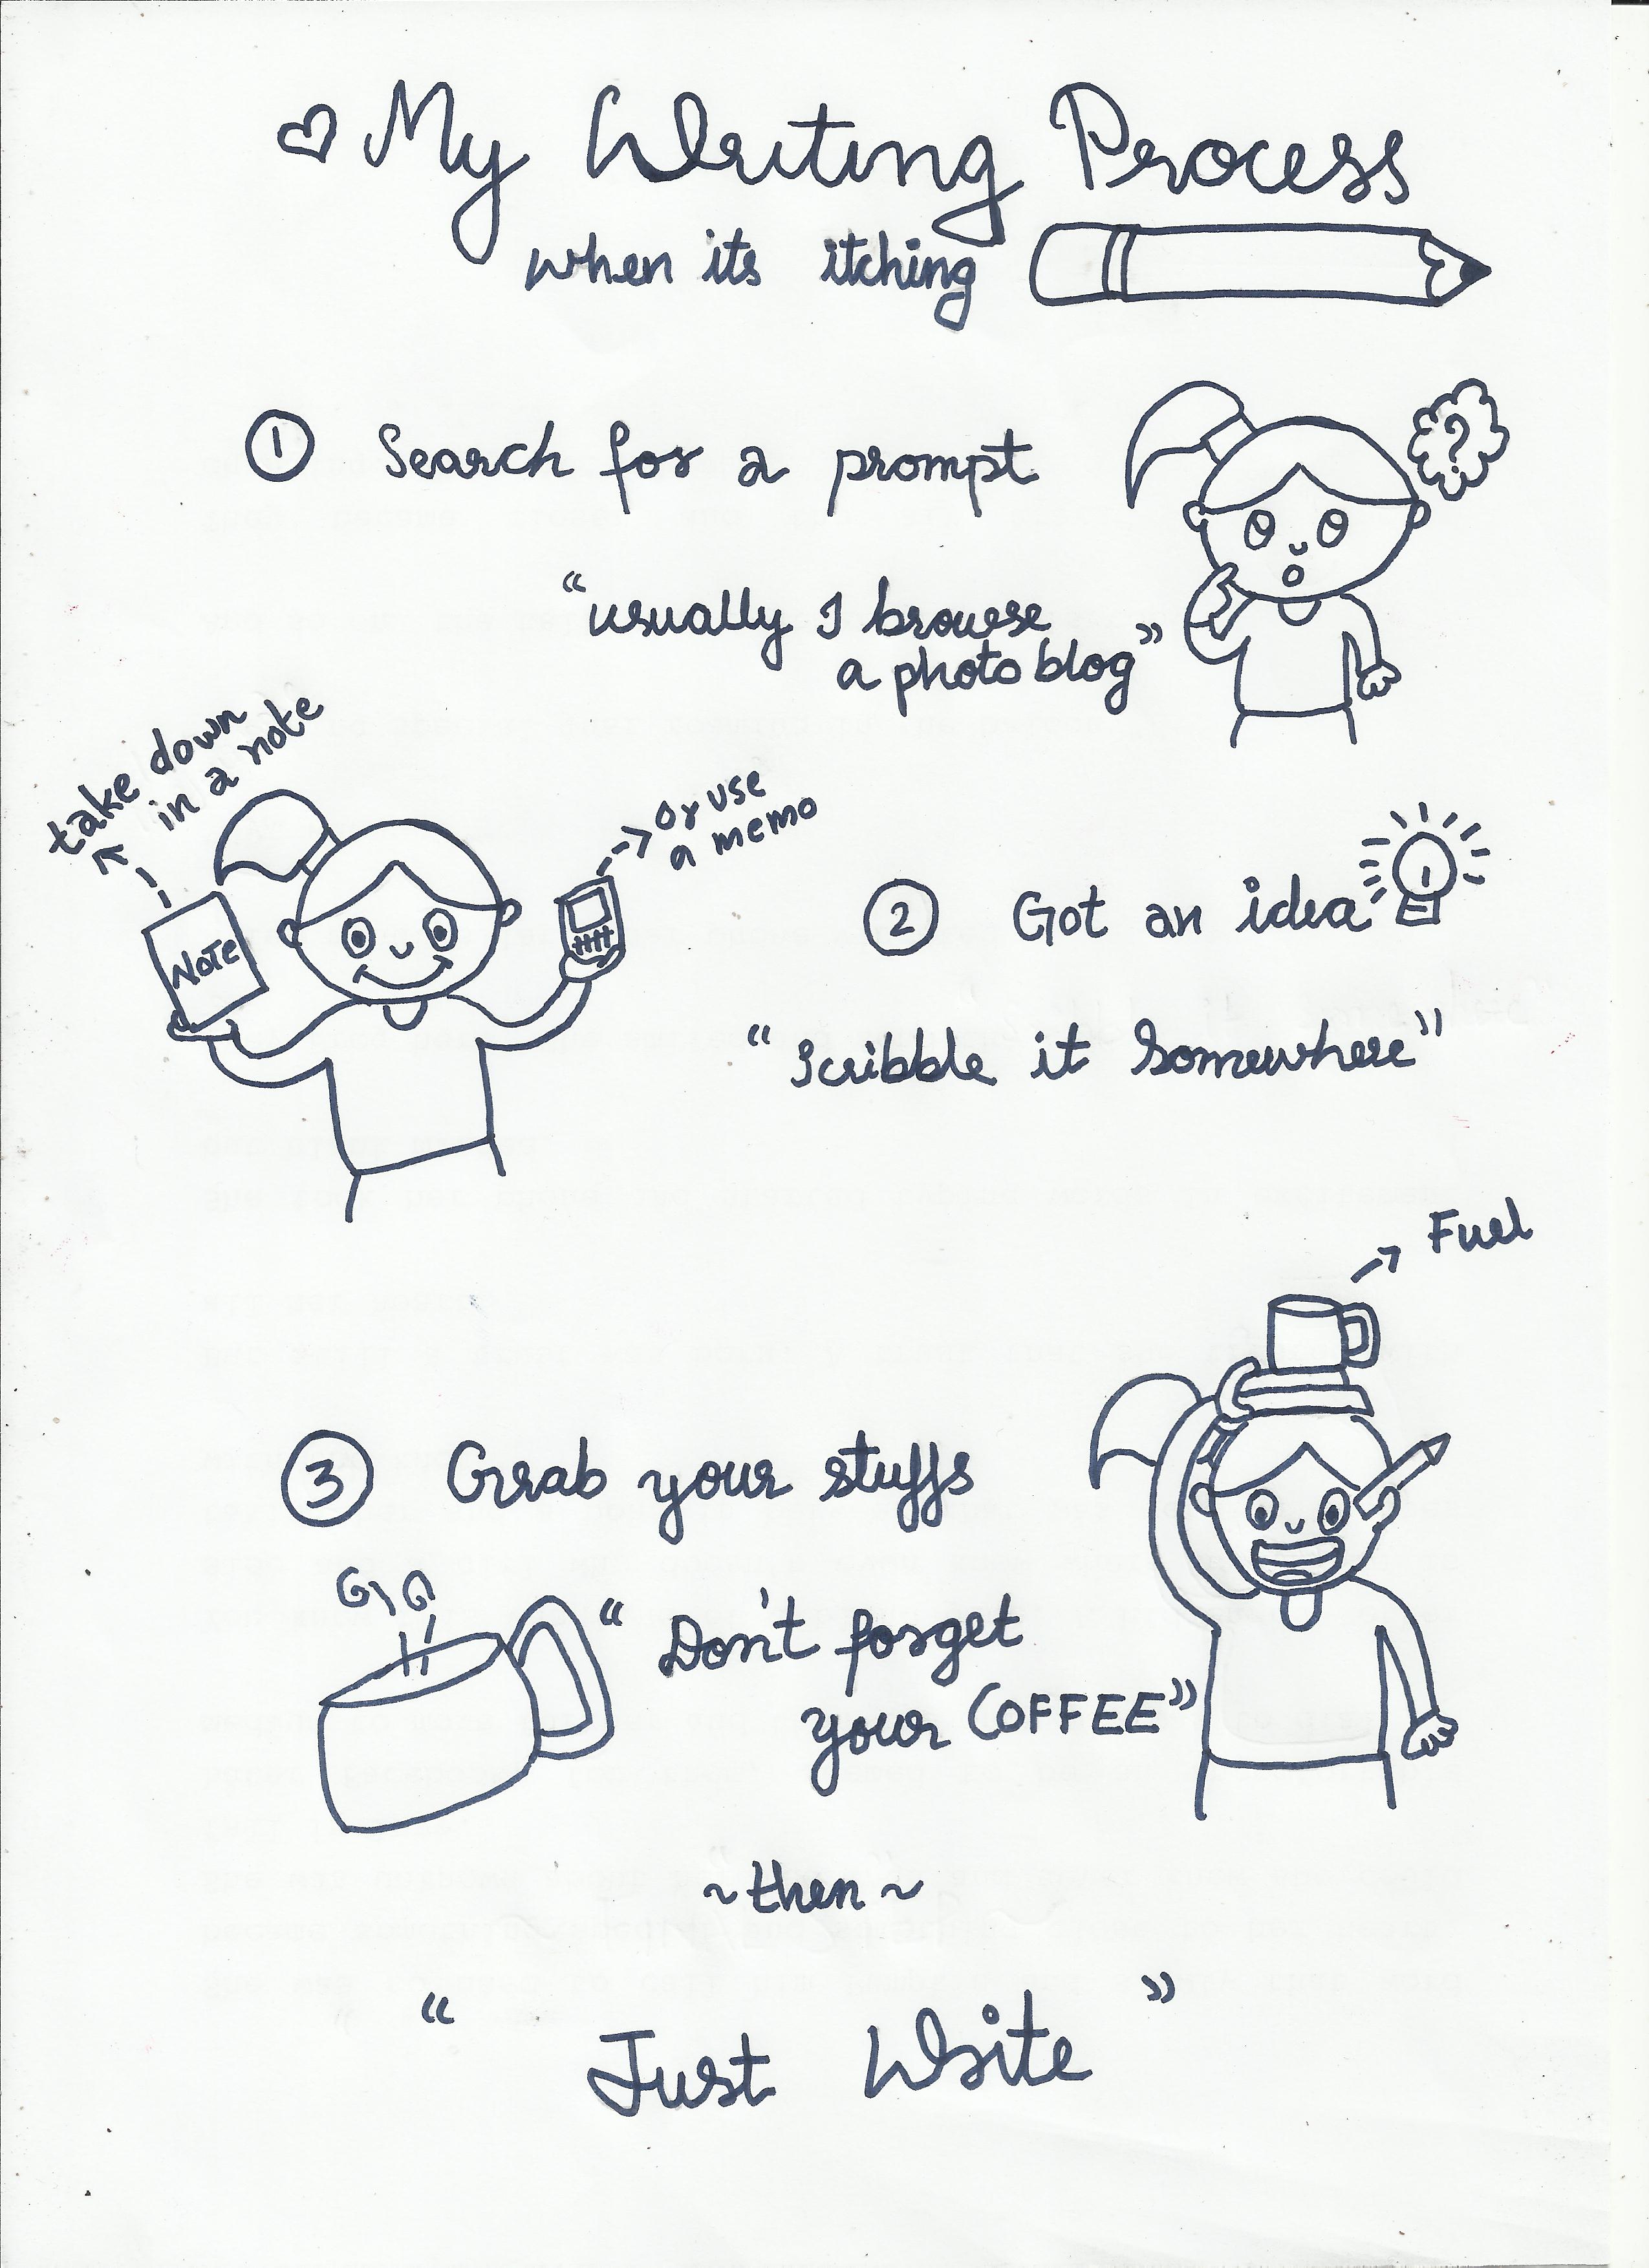 My Writing Process
when its itching
1 Search for a prompt
?
"usually I browse
a photo blog"
take down
in a note
Or use
a memo
NOTE
2 Got an idea
"Scribble it Somewhere"
Fuel
3 Grab your stuffs
"Don't forget
your COFFEE"
~then~
"Just Write"